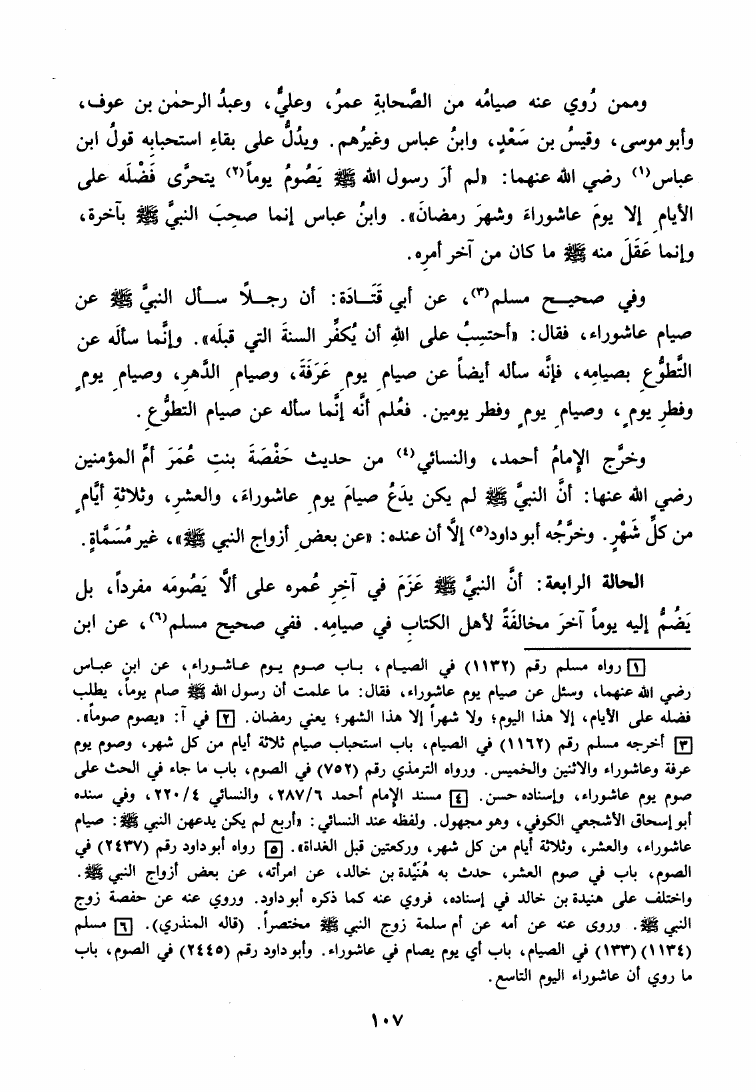 وممن رُوي عنه صيامُه من الصَّحابةِ عمرُ، وعليٌّ، وعبدُ الرحمٰن بن عوف،
وأبو موسى، وقيسُ بن سَعْدٍ، وابنُ عباس وغيرُهم. ويدُلُّ على بقاءِ استحبابِه قولُ ابن
عباس(١) رضي الله عنهما: «لم أرَ رسول الله ﷺ يَصُومُ يوماً(٢) يتحرَّى فَضْلَه على
الأيام إلا يومَ عاشوراءَ وشهرَ رمضانَ». وابنُ عباس إنما صحِبَ النبيَّ ﷺ بآخرة،
وإنما عَقَلَ منه ﷺ ما كان من آخر أمرِه.
وفي صحيح مسلم(٣)، عن أبي قَتَادَة: أن رجلًا سأل النبيَّ ﷺ عن
صيام عاشوراء، فقال: «أحتسِبُ على اللهِ أن يُكفِّر السنةَ التي قبلَه». وإنَّما سألَه عن
التَّطوُّعِ بصيامِه، فإنَّه سأله أيضاً عن صيامِ يومِ عَرَفَةَ، وصيامِ الدَّهرِ، وصيامِ يومٍ
وفطرِ يومٍ، وصيامِ يومٍ وفطر يومين. فعُلم أنَّه إنَّما سأله عن صيام التطوُّعِ.
وخرَّج الإمامُ أحمد، والنسائي(٤) من حديث حَفْصَةَ بنتِ عُمَرَ أمِّ المؤمنين
رضي الله عنها: أنَّ النبيَّ ﷺ لم يكن يدَعُ صيامَ يومِ عاشوراءَ، والعشرِ، وثلاثةِ أيَّامٍ
من كلِّ شَهْرٍ. وخرَّجُه أبو داود(٥) إلَّا أن عنده: «عن بعضِ أزواج النبي ﷺ»، غير مُسَمَّاةٍ.
الحالة الرابعة: أنَّ النبيَّ ﷺ عَزَمَ في آخرِ عُمره على ألَّا يَصُومَه مفرداً، بل
يَضُمُّ إليه يوماً آخرَ مخالفَةً لأهل الكتابِ في صيامِه. ففي صحيح مسلم(٦)، عن ابن
[١] رواه مسلم رقم (١١٣٢) في الصيام، باب صوم يوم عاشوراء، عن ابن عباس
رضي الله عنهما، وسئل عن صيام يوم عاشوراء، فقال: ما علمت أن رسول الله ﷺ صام يوماً، يطلب
فضله على الأيام، إلا هذا اليوم؛ ولا شهراً إلا هذا الشهر؛ يعني رمضان. [٢] في آ: «يصوم صوماً».
[٣] أخرجه مسلم رقم (١١٦٢) في الصيام، باب استحباب صيام ثلاثة أيام من كل شهر، وصوم يوم
عرفة وعاشوراء والاثنين والخميس. ورواه الترمذي رقم (٧٥٢) في الصوم، باب ما جاء في الحث على
صوم يوم عاشوراء، وإسناده حسن. [٤] مسند الإمام أحمد ٢٨٧/٦، والنسائي ٢٢٠/٤، وفي سنده
أبو إسحاق الأشجعي الكوفي، وهو مجهول. ولفظه عند النسائي: «أربع لم يكن يدعهن النبي ﷺ: صيام
عاشوراء، والعشر، وثلاثة أيام من كل شهر، وركعتين قبل الغداة». [٥] رواه أبو داود رقم (٢٤٣٧) في
الصوم، باب في صوم العشر، حدث به هُنَيْدة بن خالد، عن امرأته، عن بعض أزواج النبي ﷺ.
واختلف على هنيدة بن خالد في إسناده، فروي عنه كما ذكره أبو داود. وروي عنه عن حفصة زوج
النبي ﷺ. وروى عنه عن أمه عن أم سلمة زوج النبي ﷺ مختصراً. (قاله المنذري). [٦] مسلم
(١١٣٤) (١٣٣) في الصيام، باب أي يوم يصام في عاشوراء. وأبو داود رقم (٢٤٤٥) في الصوم، باب
ما روي أن عاشوراء اليوم التاسع.
١٠٧